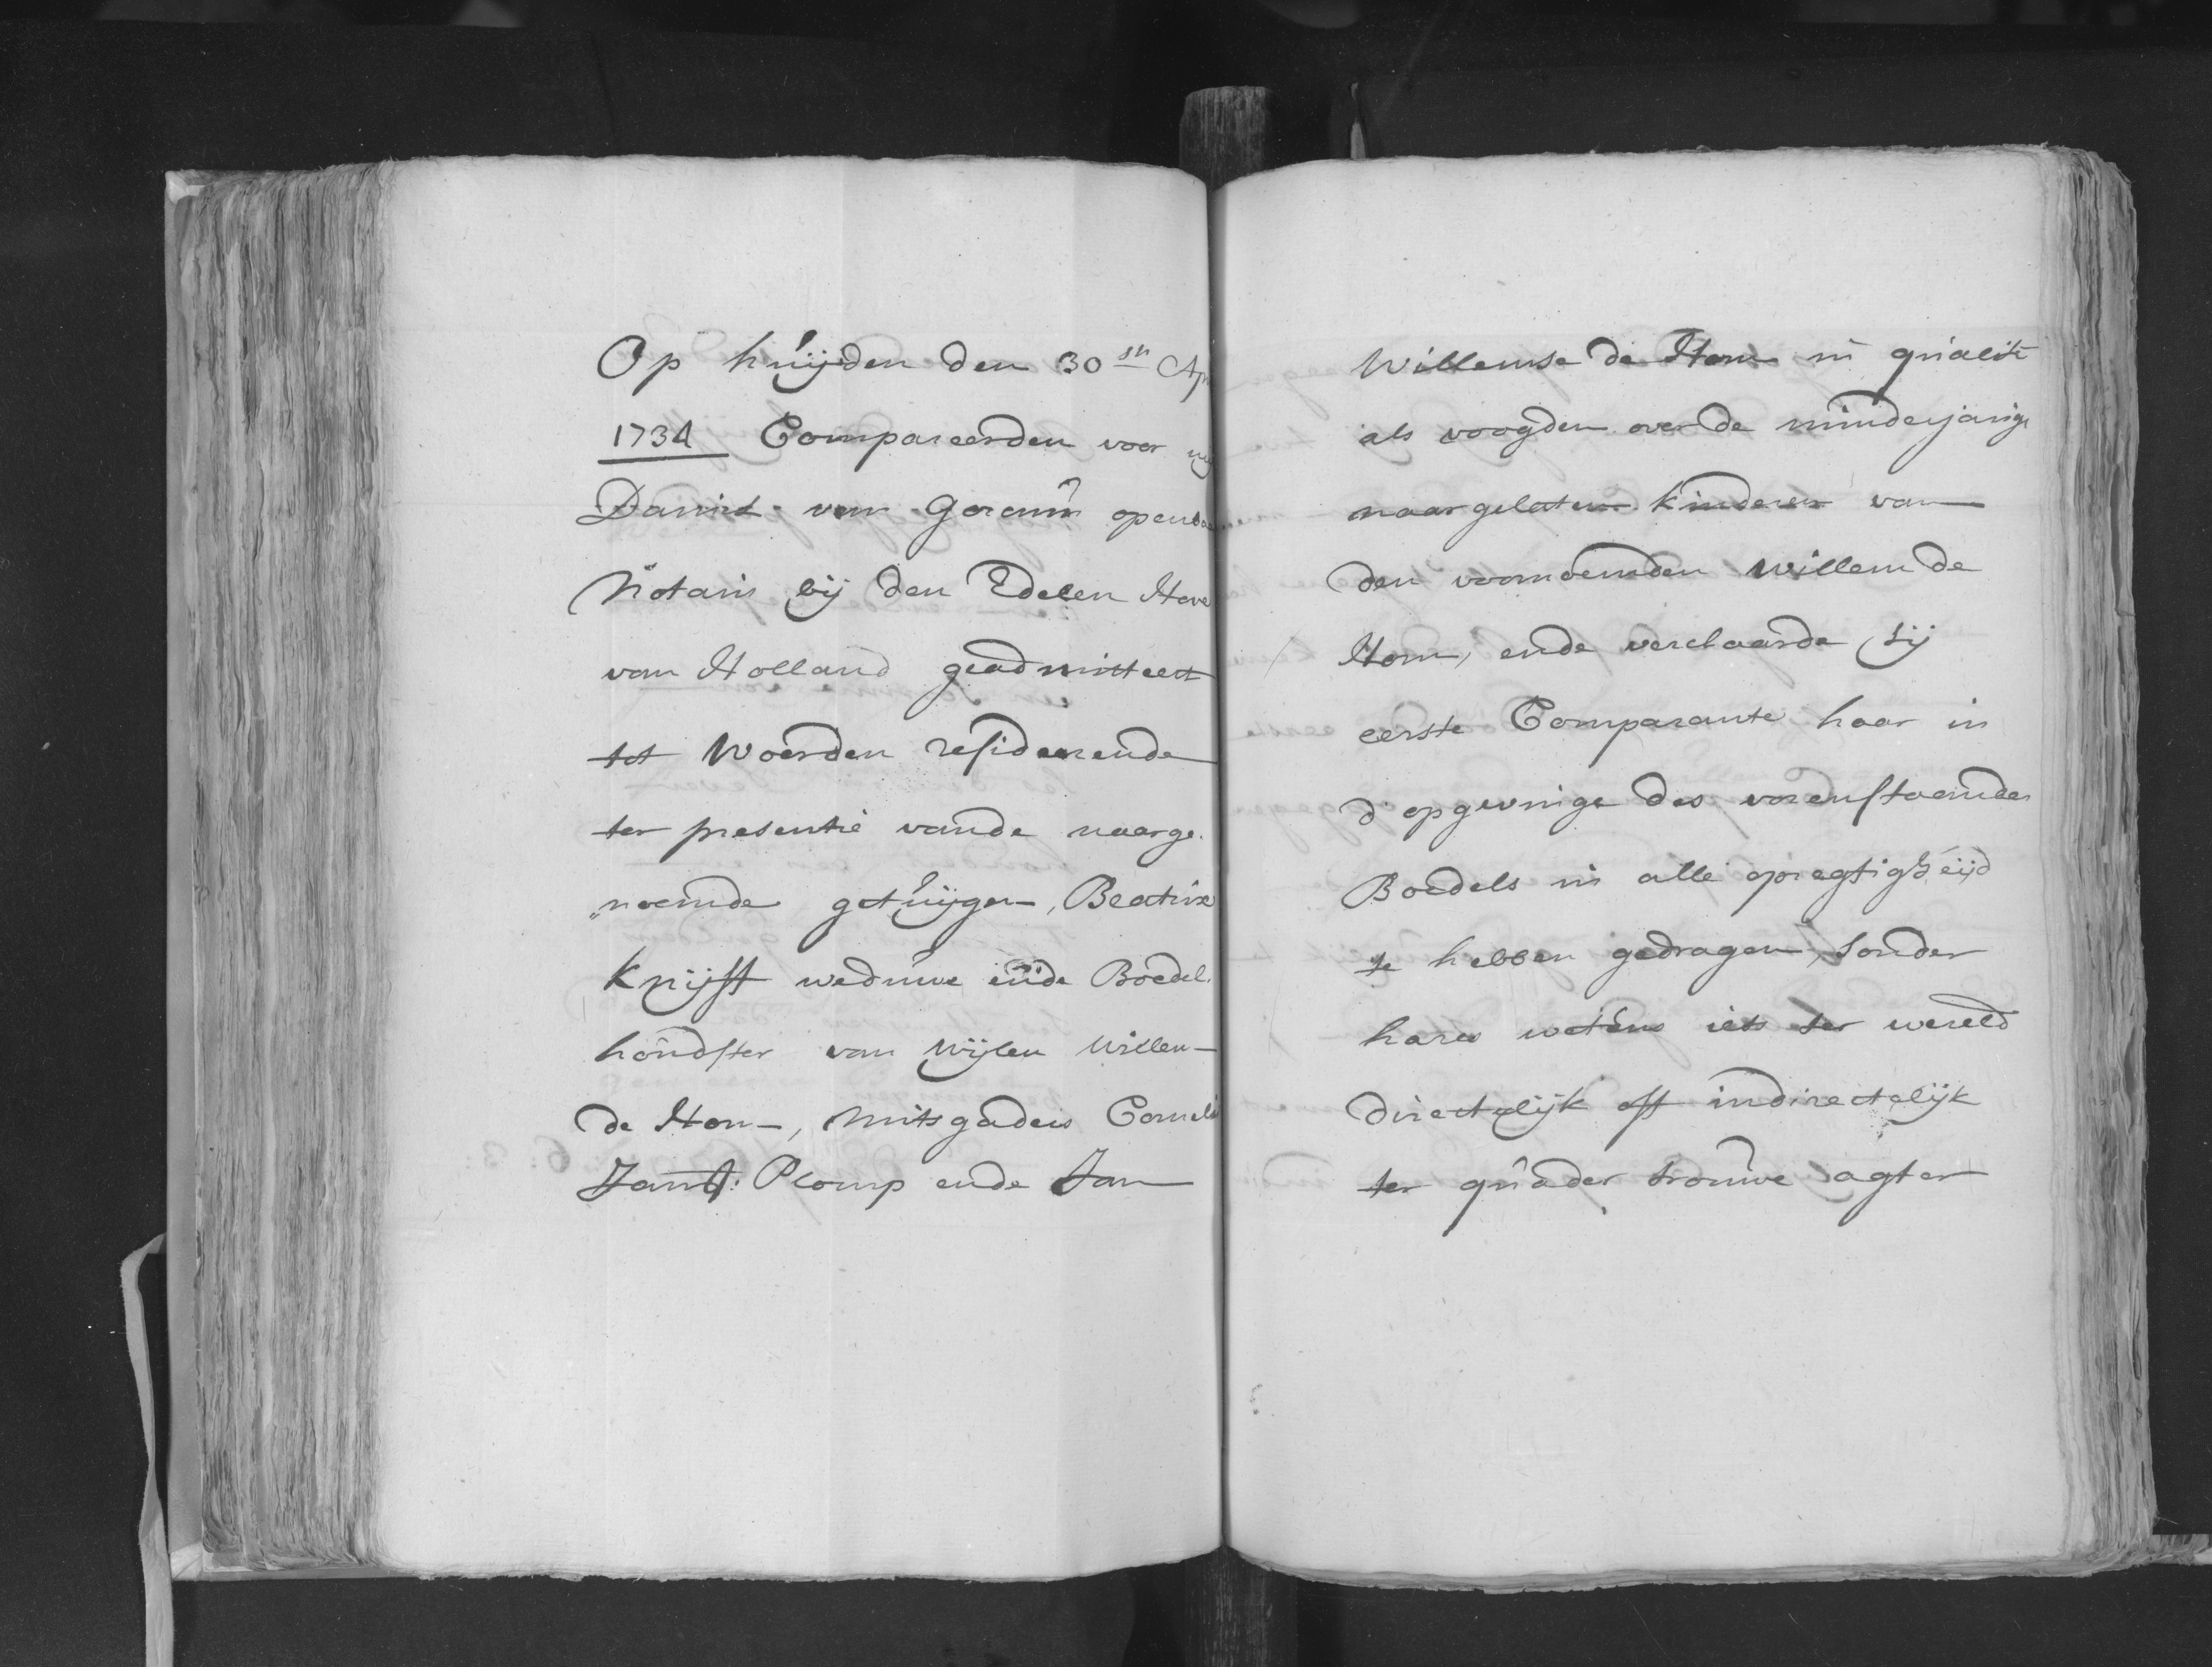 Op huijden den 30sten Apr
1734 Compareerden voor mij
Daniel van Gorcum openba
Notaris bij den Edelen Hove
van Holland geadmitteert
tot Woerden resideerende
ter presentie vande naarge.
"noemde getuijgen, Beatrix
Knijff weduwe ende Boedel.
houdster van wijlen Willem
de Hom, mitsgaders Cornelis
Jansz: Plomp ende Jan
Willemse de Hom in qualité
als voogden over de minderjarige
naargelaten kinderen van
den voornoemden Willem de
Hom, ende verclaarde sij
eerste Comparante haar in
d'opgevinge des vorenstaenden
Boedels in alle opregtigheijd
te hebben gedragen, sonder
hares wetens iets ter wereld
directelijk off indirectelijk
ter quader trouwe agter